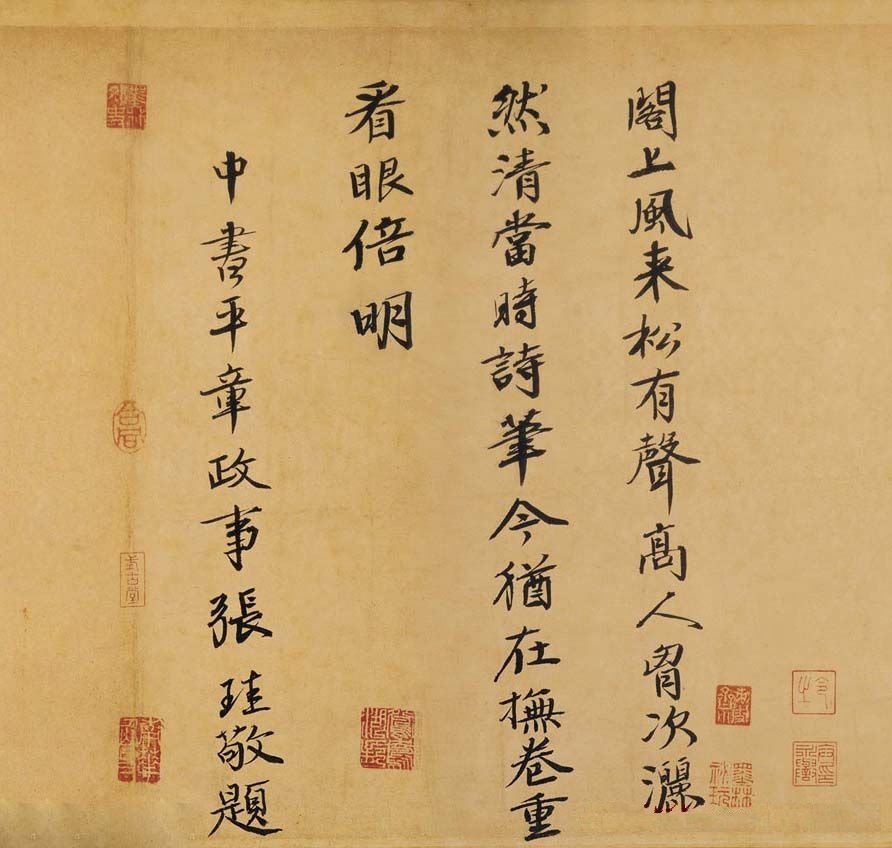 閣上風来松有聲高人胷次灑
然清當時詩筆今猶在撫卷重
看眼倍明
中書平章政事張珪敬題
式古堂